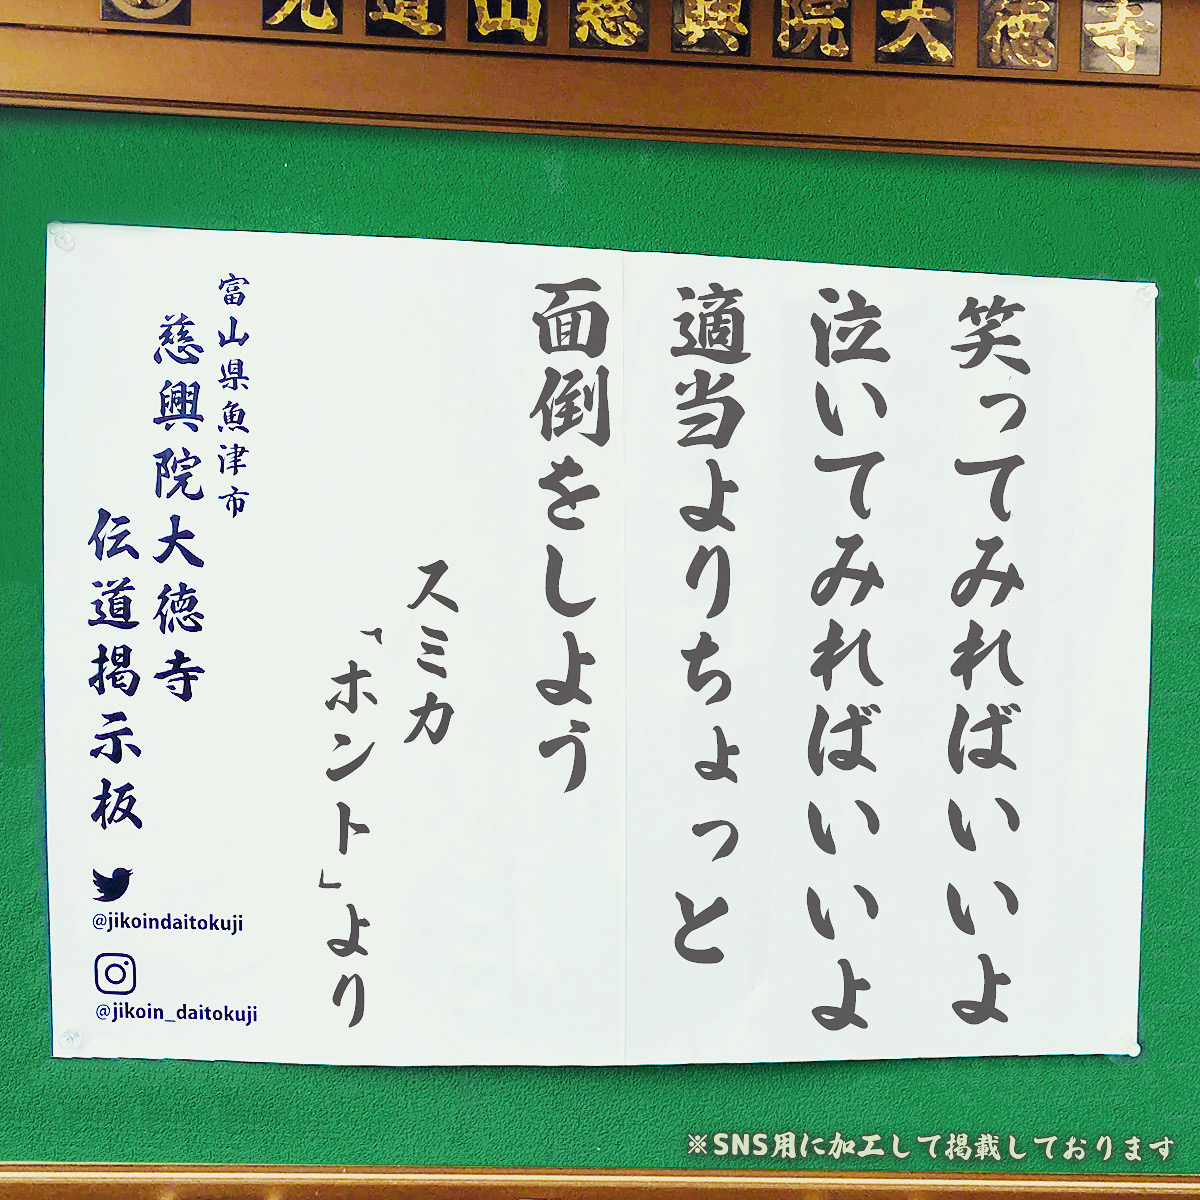 光道山慈興院大徳寺
笑ってみればいいよ
泣いてみればいいよ
適当よりちょっと
面倒をしよう
スミカ
「ホント」より
富山県魚津市
慈興院大徳寺
伝道掲示板
@jikoindaitokuji
@jikoin_daitokuji
※SNS用に加工して掲載しております